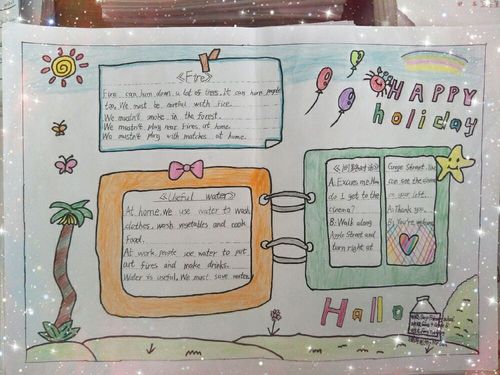 《Fire》
Fire can burn down a lot of trees. It can burn people
too. We must be careful with fire.
We mustn't smoke in the forest.
We mustn't play near fires at home.
We mustn't play with matches at home.
HAPPY
holiday
《Useful water》
At home. We use water to wash
clothes. wash vegetables and cook
food.
At work. people use water to put
out fires and make drinks.
Water is useful. We must save water.
A: Excuse me. How
do I get to the
cinema?
B: Walk along
Apple Street and
turn right at
Orange Street. You
can see the cinema
on your left.
A: Thank you.
B: You're welcome.
Hallo